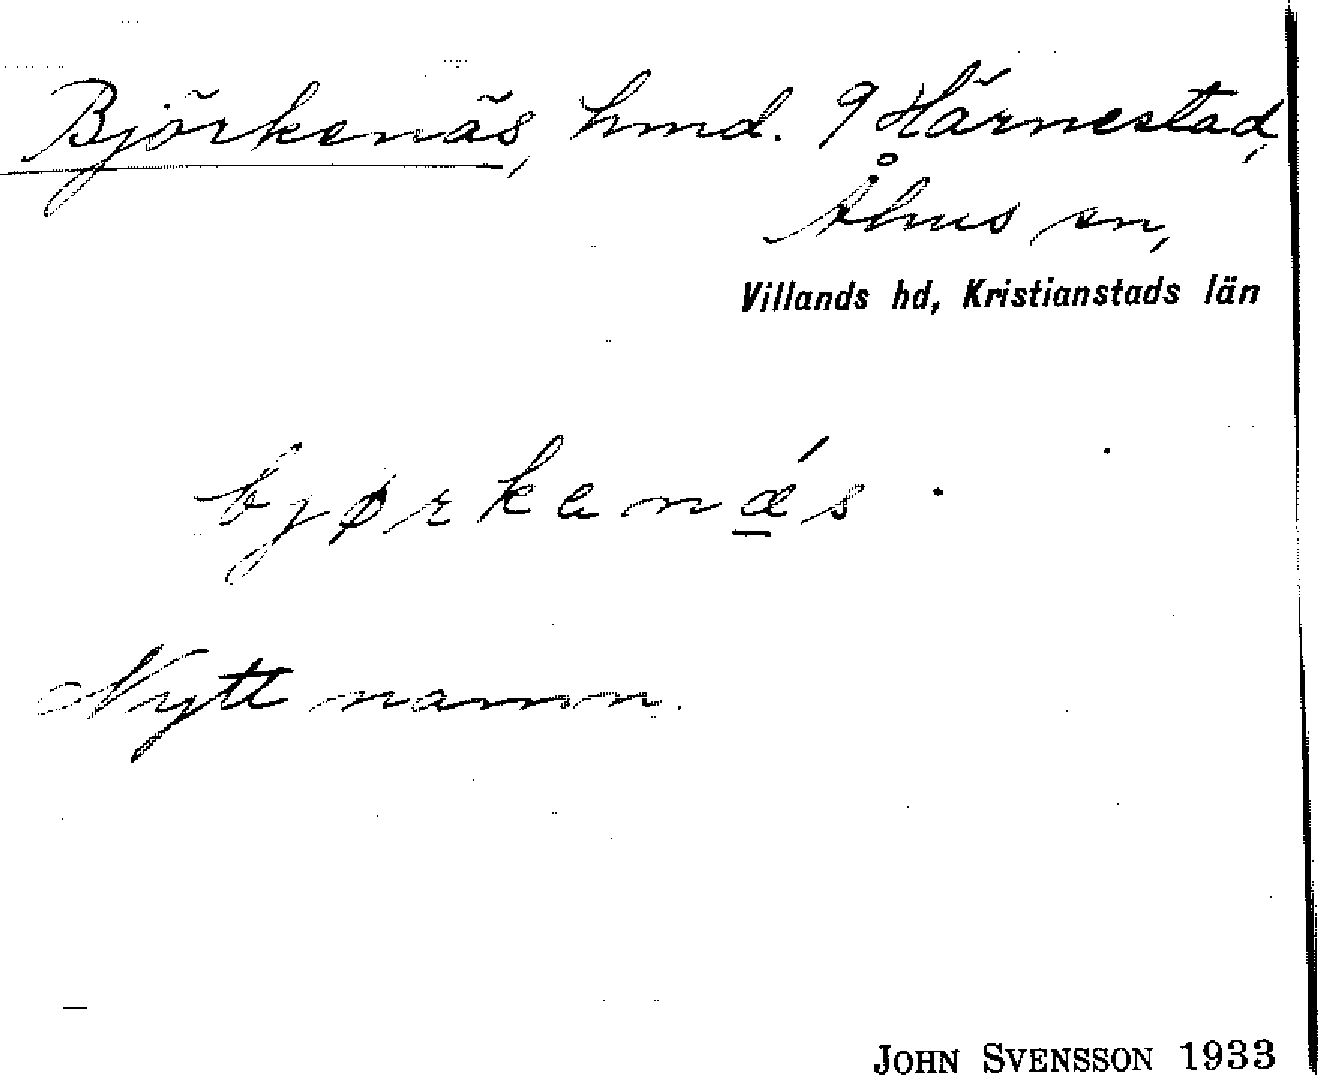 Björkenäs, hmd. 9 Härnestad,
Åhus sn,
Villands hd, Kristianstads län
bjørkenæ´s .
Nytt namn.
JOHN SVENSSON 1933